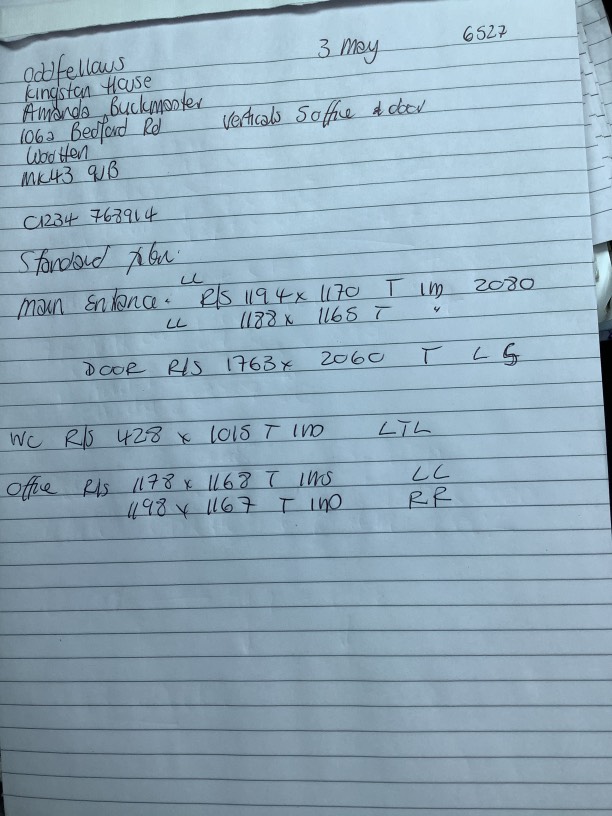 3 May 6527
Oddfellows
Kingston House
Amanda Buckmaster
106a Bedford Rd Verticals 5 office & door
Wootten
MK43 9JB
01234 763914
Standard
LL
Main Entance. R/S 1194 x 1170 T 1m 2080
LL 1188 x 1165 T "
DOOR R/S 1763 x 2060 T L
WC R/S 428 x 1015 T 1no LTL
Office R/S 1178 x 1168 T LL
1198 x 1167 T 1no RR